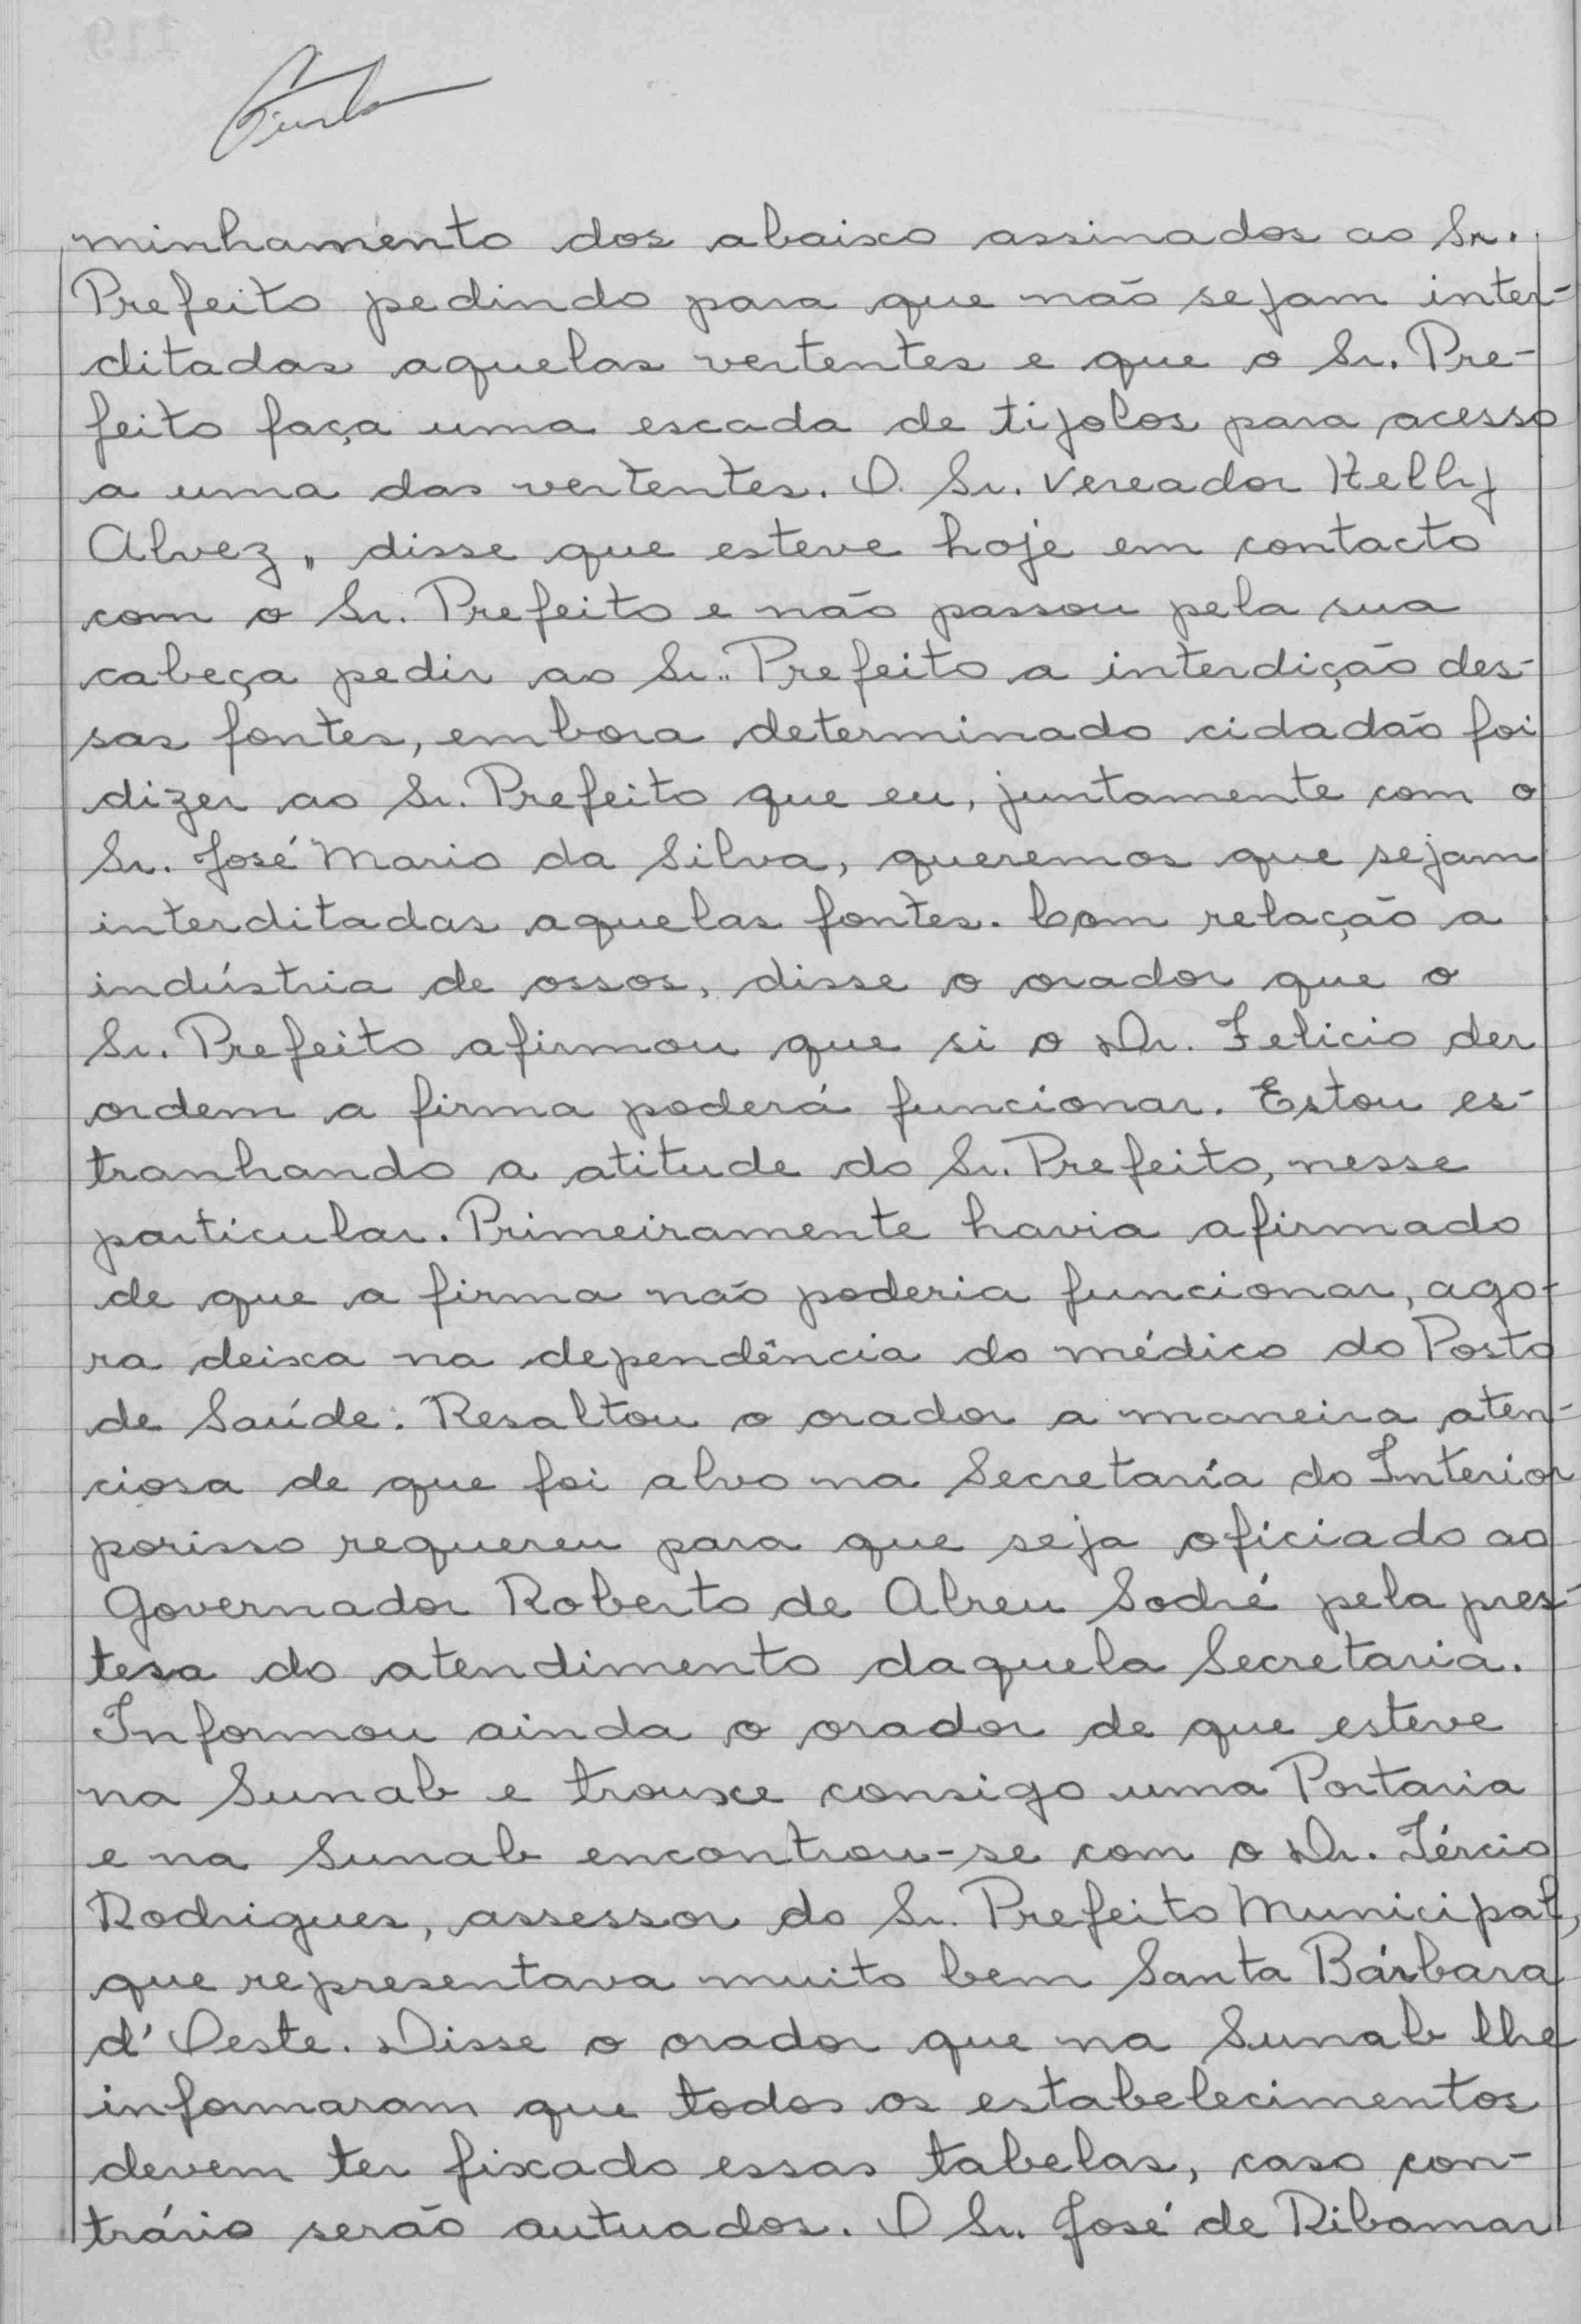 minhamento dos abaixo assinados ao Sr.
Prefeito pedindo para que não sejam inter-
ditadas aquelas vertentes e que o Sr. Pre-
feito faça uma escada de tijolos para acesso
a uma das vertentes. O Sr. Vereador Kelly
Alvez, disse que esteve hoje em contacto
com o Sr. Prefeito e não passou pela sua
cabeça pedir ao Sr. Prefeito a interdição des-
sas fontes, embora determinado cidadão foi
dizer ao Sr. Prefeito que eu, juntamente com o
Sr. José Mario da Silva, queremos que sejam
interditadas aquelas fontes. Com relação a
indústria de ossos, disse o orador que o
Sr. Prefeito afirmou que si o Dr. Felicio der
ordem a firma poderá funcionar. Estou es-
tranhando a atitude do Sr. Prefeito, nesse
particular. Primeiramente havia afirmado
de que a firma não poderia funcionar, ago-
ra deixa na dependência do médico do Posto
de Saúde. Resaltou o orador a maneira aten-
ciosa de que foi alvo na Secretaría do Interior
porisso requereu para que seja oficiado ao
Governador Roberto de Abreu Sodré pela pres-
tesa do atendimento daquela Secretaria.
Informou ainda o orador de que esteve
na Sunab e trouxe consigo uma Portaria
e na Sunab encontrou-se com o Dr. Tércio
Rodrigues, assessor do Sr. Prefeito Municipal,
que representava muito bem Santa Bárbara
d'Oeste. Disse o orador que na Sunab lhe
informaram que todos os estabelecimentos
devem ter fixado essas tabelas, caso con-
trário serão autuados. O Sr. José de Ribamar